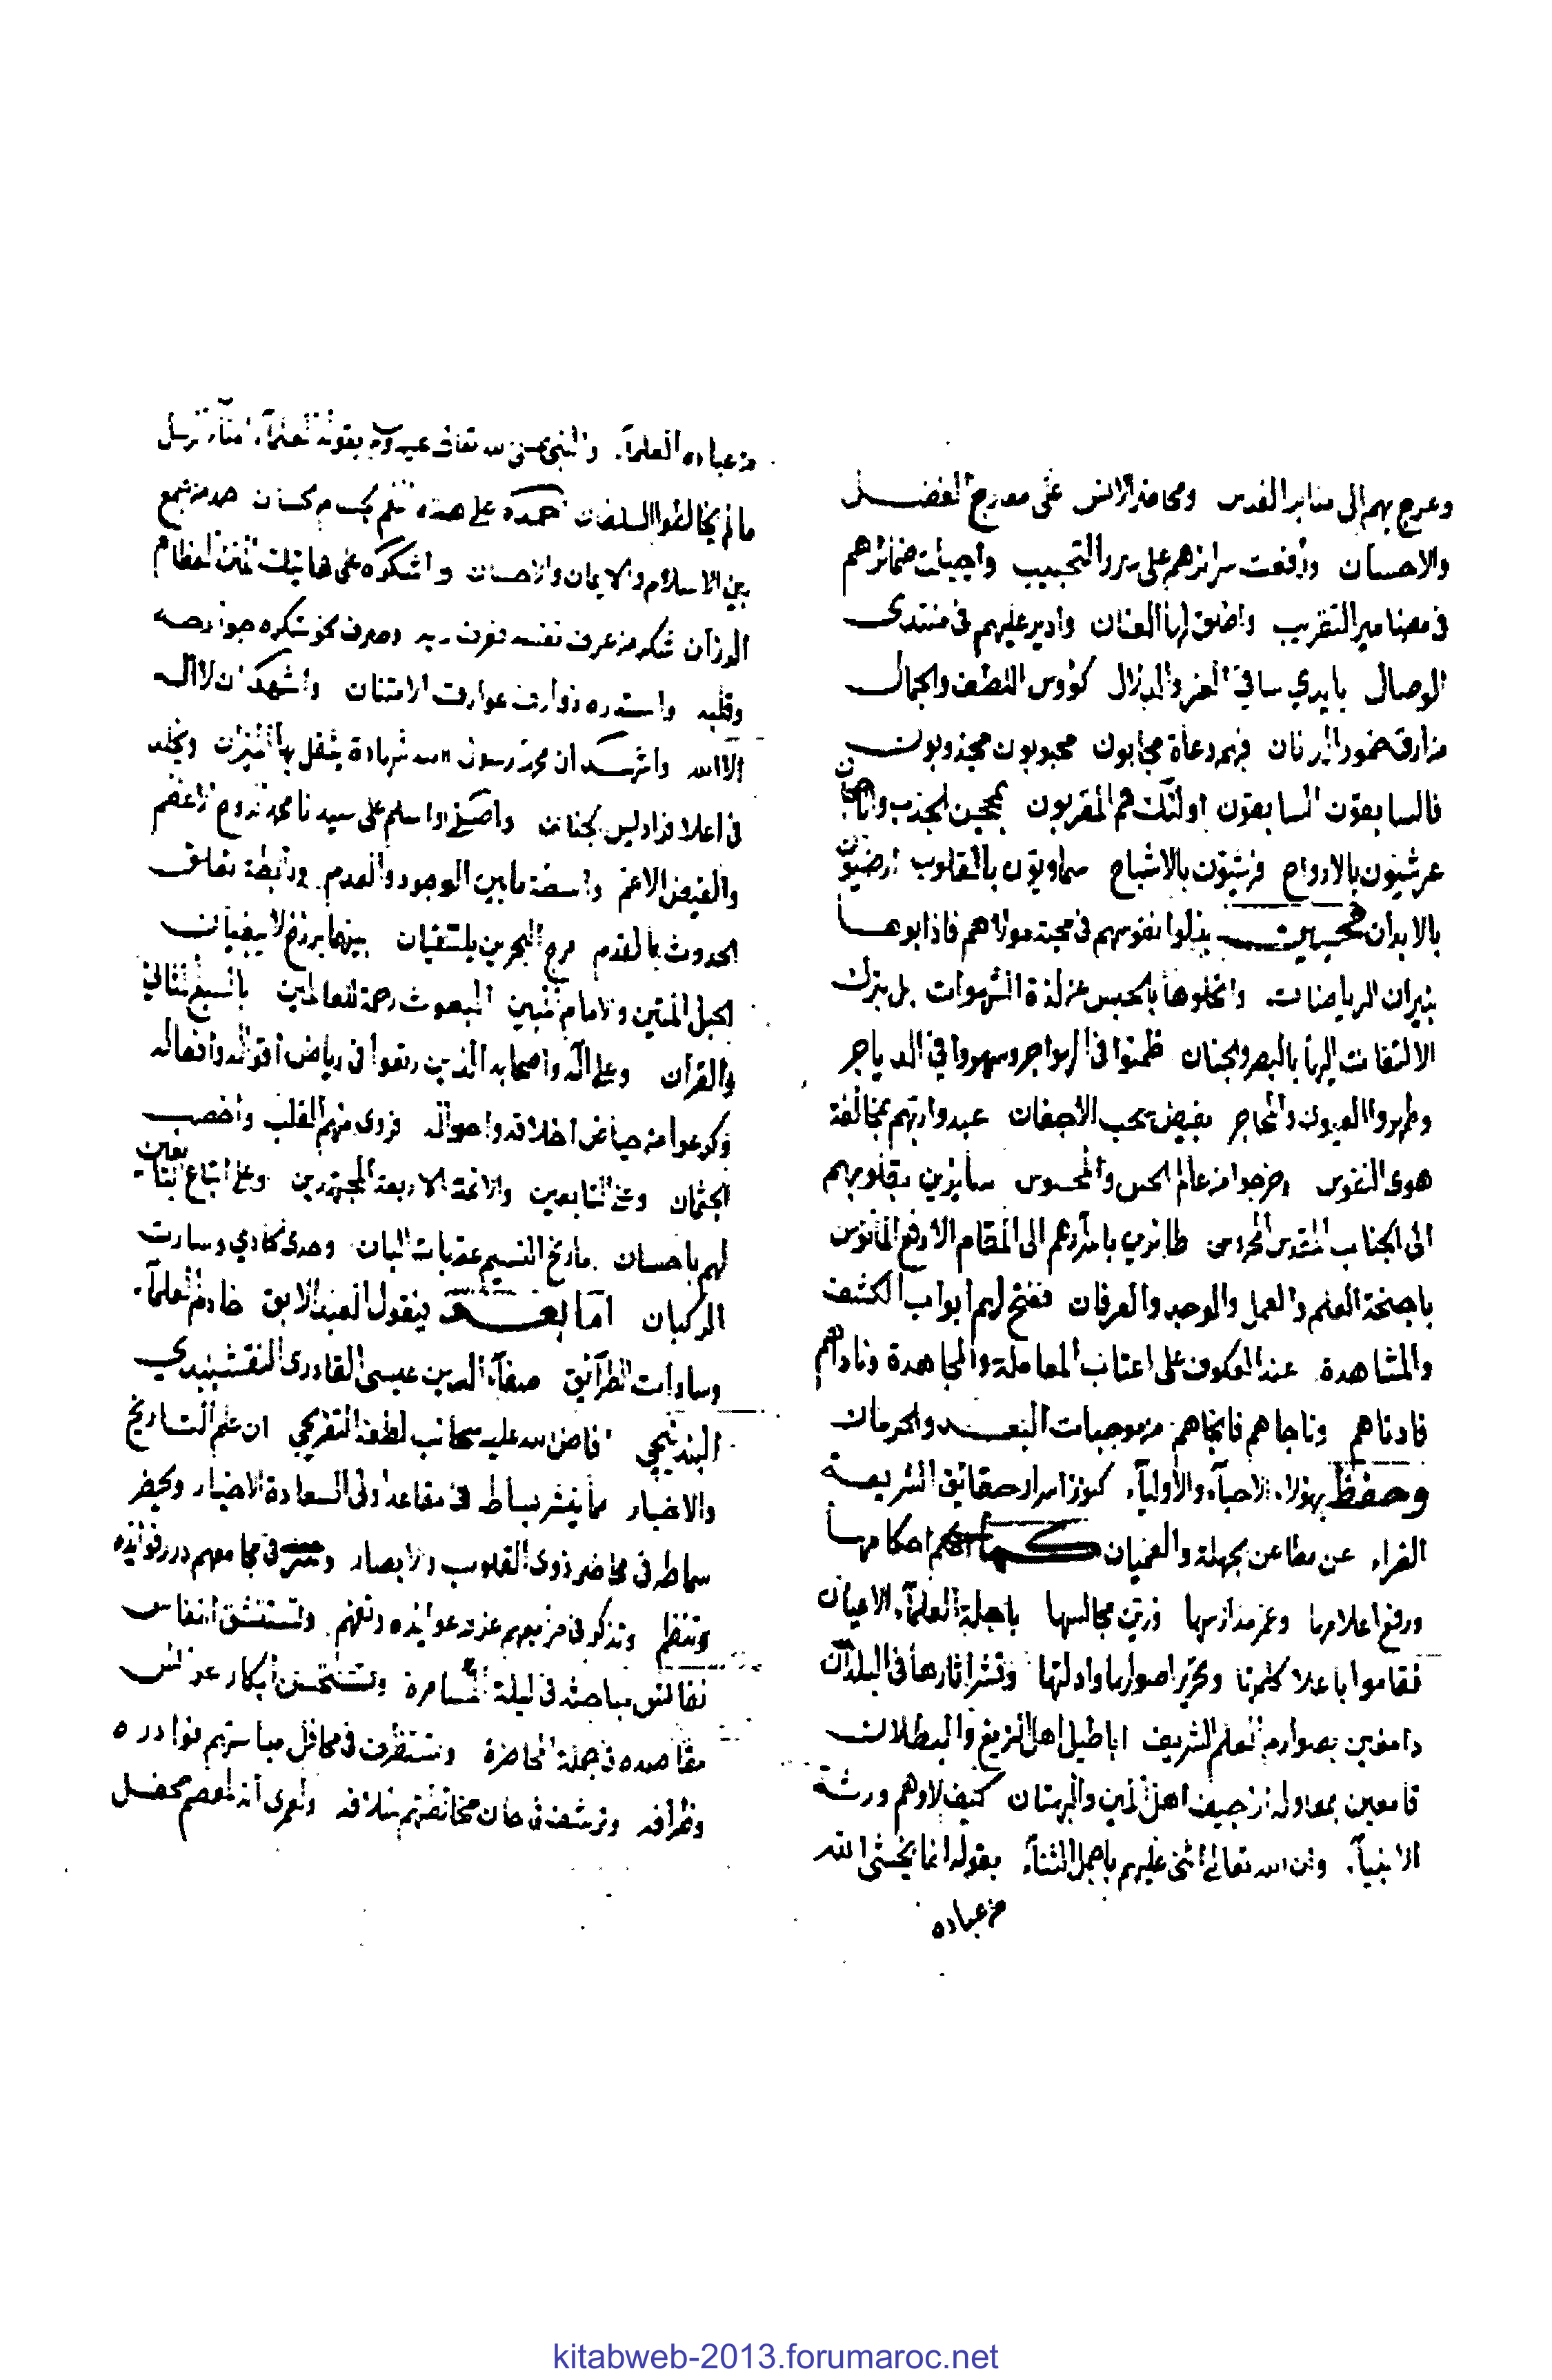 وعرج بهم الى منابر القدس ومحاضر الانس على معارج الفضل
والاحسان ورفعت سرائرهم على سرر التحبيب واجيلت ضمائرهم
فى مضامير التقريب واطلق لها العنان وادير عليهم فى منتدى
الوصال بايدي ساقي العز والدلال كؤوس اللطف والجمال
فهم دعاة مجابون محبوبون مجذوبون
فالسابقون السابقون اولئك هم المقربون
عرشيون بالارواح فرشيون بالاشباح سماويون بالقلوب ارضيون
بالابدان محبين بذلوا نفوسهم فى محبة مولاهم فاذابوها
بنيران الرياضات بالحبس عن لذة الشهوات بل بترك
الالتفات اليها بالبصر والجنان ظمئوا فى الهواجر وسهروا في الدياجر
وطهروا العيون والمحاجر بفيض سحب الاجفان عبدوا ربهم بمخالفة
هوى النفوس وخرجوا من عالم الحس والمحسوس سائرين بقلوبهم
الى الجناب المقدس المحروس طائرين باسرارهم الى المقام الارفع المانوس
باجنحة العلم والعمل والوجد والعرفان ففتح لهم ابواب الكشف
والمشاهدة عند العكوف على اعتاب المعاملة والمجاهدة وناداهم
فادناهم وناجاهم فانجاهم من موجبات البعد والحرمان
وحفظ بهؤلاء الاحباء والاولياء كنوز اسرار حقايق الشريعة
الغراء عن مطاعن الجهلة والعميان كما احكم احكامها
ورفع اعلامها وعمر مدارسها وزين مجالسها باجلة العلماء الاعيان
فقاموا باعلاء كلمتها وتحرير اصولها وادلتها ونشر اثارها فى البلدان
دامغين بصوارم العلم الشريف اباطيل اهل الزيغ والبطلان
قامعين بمعاول اراجيف اهل المين والبهتان كيف لا وهم ورثة
الانبياء وان الله تعالى اثنى عليهم باجمل الثناء بقوله انما يخشى الله
من عباده
من عباده العلماء والنبى صلى الله تعالى عليه وسلم بقوله العلماء امناء الرسل
ما لم يخالطوا السلطان احمده على هذه النعم الحسان حمد من جمع
بين الاسلام والايمان والاحسان واشكره على هاتيك المنن العظام
الوزان شكر من عرف نفسه فعرف ربه وصرف نحو شكره جوارحه
وقلبه واستدره ذوارف عوارف الامتنان واشهد ان لا اله
الا الله واشهد ان محمدا رسول الله شهادة يثقل بها الميزان ويخلد
فى اعلا فراديس الجنان واصلي واسلم على سيدنا محمد الروح الاعظم
والفيض الاعم واسطة ما بين الوجود والعدم ورابطة تعلق
الحدوث بالقدم مرج البحرين يلتقيان بينهما برزخ لا يبغيان
الحبل المتين والامام المبين المبعوث رحمة للعالمين بالسبع المثاني
والقرآن وعلى آله واصحابه الذين رتعوا فى رياض اقواله وافعاله
وكرعوا من حياض اخلاقه واحواله فروى منهم القلب واخصب
الجثمان وعلى التابعين والائمة الاربعة المجتهدين وعلى اتباع التابعين
لهم باحسان ما رنح النسيم عذبات البان وحدى الحادي وسارت
الركبان اما بعد فيقول العبد الآبق خادم العلماء
وسادات الطرائق صفاء الدين عيسى القادرى النقشبندي
البندنيجي افاض الله عليه سحائب لطفه التفريجي ان علم التاريخ
والاخبار مما ينشر بساطه فى مقاعد اولى السعادة الاخيار ويحضر
سماطه فى محاضر ذوى القلوب والابصار وتنثر فى مجامعهم درر فوائده
وتنظم وتذكر فى عوائده وتستنشق انفاس
نفائس مباحثه فى ليلة المسامرة وتستحسن ابكار عرائس
مقاصده فى المحاضرة وتستظرف فى محافل نوادره
وظرائفه وترتشف فى حان سلافه ولعمرى انه
kitabweb-2013.forumaroc.net